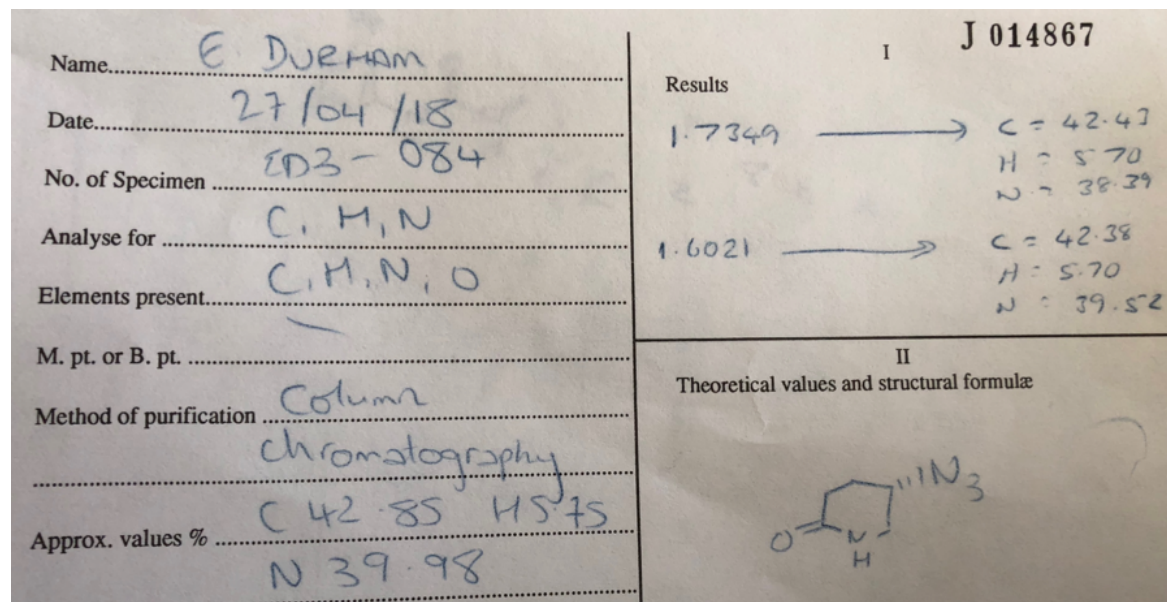 Name E. DURHAM
Date 27/04/18
No. of Specimen ED3-084
Analyse for C, H, N
Elements present C, H, N, O
M. pt. or B. pt. —
Method of purification Column
chromatography
Approx. values % C 42.85 H 5.75
N 39.98
J 014867
I
Results
1.7349 → C = 42.43
H = 5.70
N = 38.39
1.6021 → C = 42.38
H = 5.70
N = 39.52
II
Theoretical values and structural formulæ
N3
O N
H